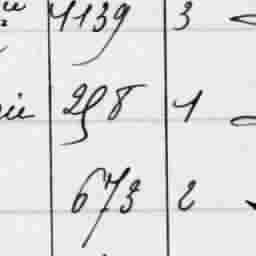 1139 3
258 1
673 2